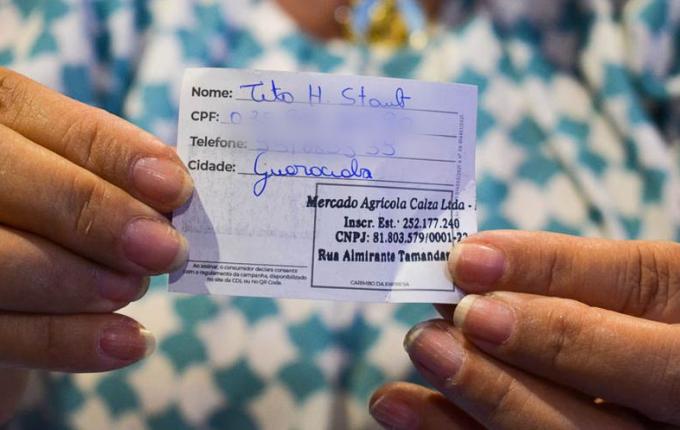 Nome: Tito H. Staub
CPF:
Telefone:
Cidade: Guaraciaba
Mercado Agrícola Caiza Ltda -
Inscr. Est.: 252.177.240
CNPJ: 81.803.579/0001-22
Rua Almirante Tamandar
CARIMBO DA EMPRESA
Ao assinar, o consumidor declara consentir
com o regulamento da campanha, disponibilizado
no site da CDL ou no QR Code.